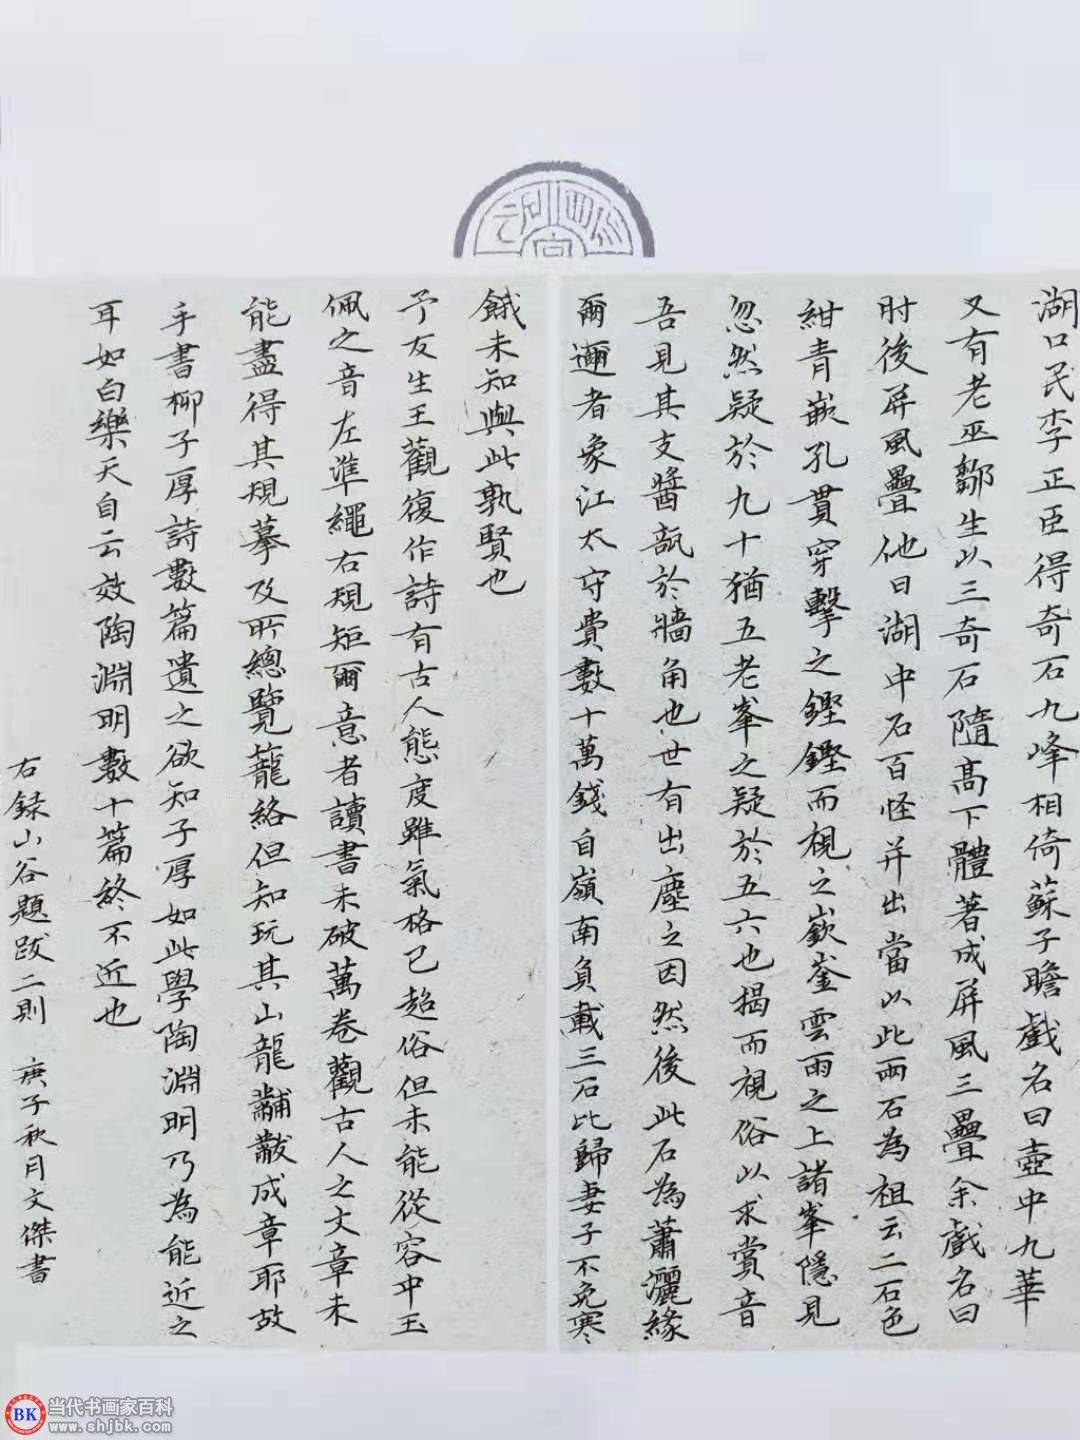 湖口民李正臣得奇石九峰相倚蘇子瞻戲名曰壺中九華
又有老巫鄒生以三奇石隨高下體著成屏風三疊余戲名曰
肘後屏風疊他日湖中石百怪并出當以此兩石為祖云二石色
紺青嵌孔貫穿擊之鏗鏗而視之嶔崟雲雨之上諸峯隱見
忽然疑於九十猶五老峯之疑於五六也揭而視俗以求賞音
吾見其支醬瓿於牆角也世有出塵之因然後此石為蕭灑緣
爾邇者象江太守費數十萬錢自嶺南負載三石比歸妻子不免寒
餓未知與此孰賢也
予友生王觀復作詩有古人態度雖氣格已超俗但未能從容中玉
佩之音左準繩右規矩爾意者讀書未破萬卷觀古人之文章未
能盡得其規摹及所總覽籠絡但知玩其山龍黼黻成章耶故
手書柳子厚詩數篇遺之欲知子厚如此學陶淵明乃為能近之
耳如白樂天自云效陶淵明數十篇終不近也
右録山谷題跋二則 庚子秋月文傑書
BK 当代书画家百科
www.shjbk.com